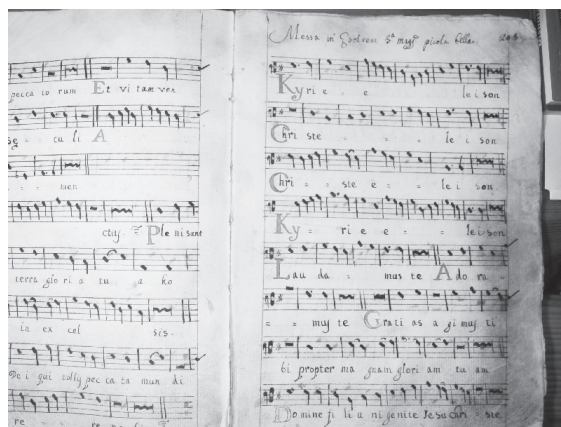 pecca to rum Et vi tam ven
se cu li A
men
ctus Ple ni sunt
terra glo ri a tu a ho
in ex cel sis.
De i qui tollis pec ca ta mun di
re
Messa in picola bella. 203
Ky ri e e le i son
Chri ste le i son
Chri ste e le i son
Ky ri e e le i son
Lau da mus te A do ra
mus te Grati as a gi mus ti
bi propter ma gnam glori am tu am
Do mine fi li u ni genite Jesu Chri ste